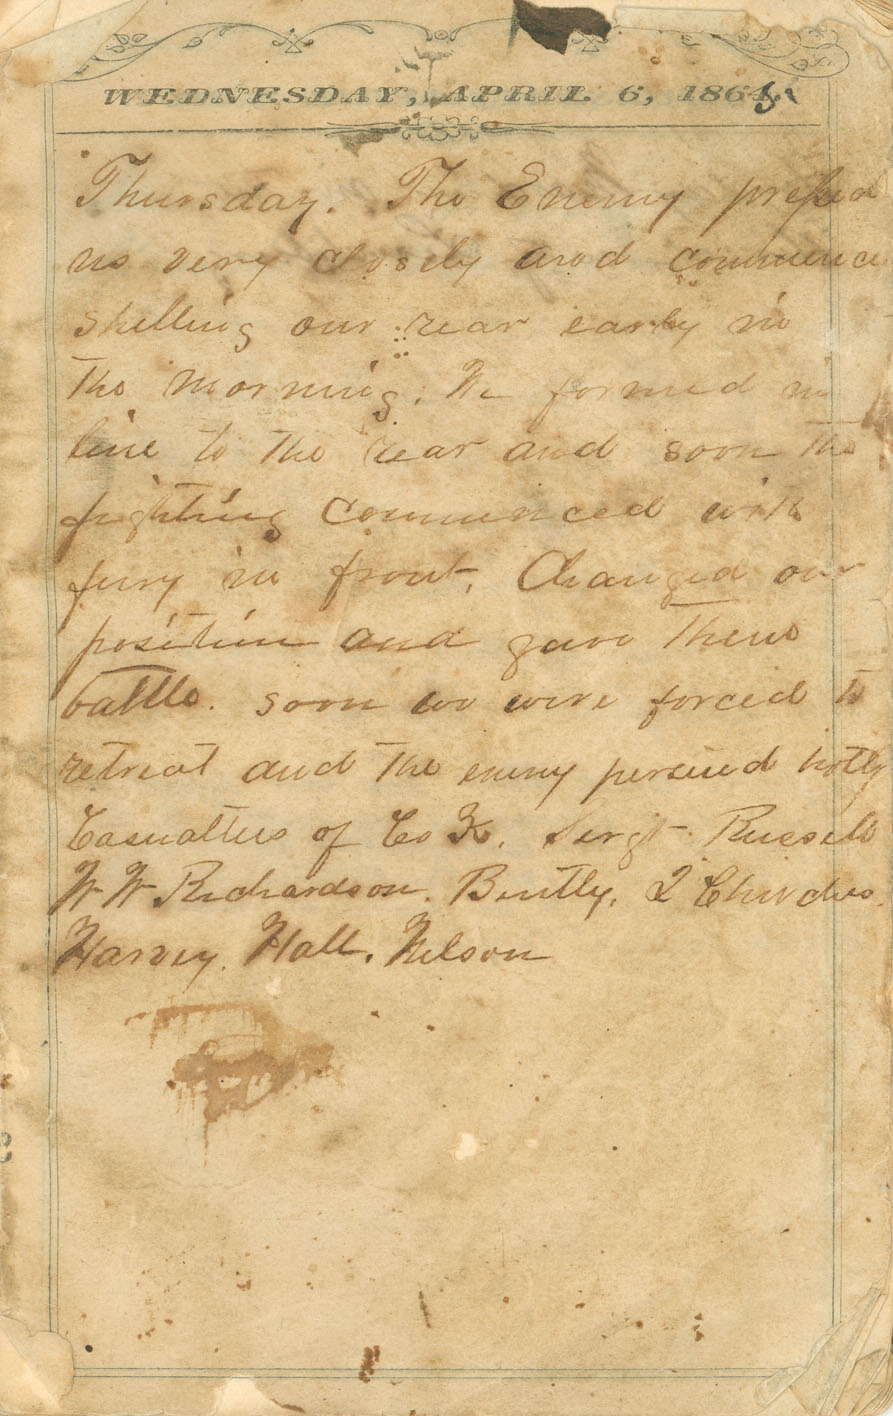 WEDNESDAY, APRIL 6, 1865
Thursday. The Enemy pressed
us very closely and commence
shelling our rear early in
the morning. We formed in
line to the rear and soon the
fighting commenced with
fury in front, Changed our
position and gave them
battle. soon we were forced to
retreat and the enemy persued hotly
Casualties of Co K. Sergt. Russell
W W Richardson. Bently, 2
Harvey. Hall. Nelson